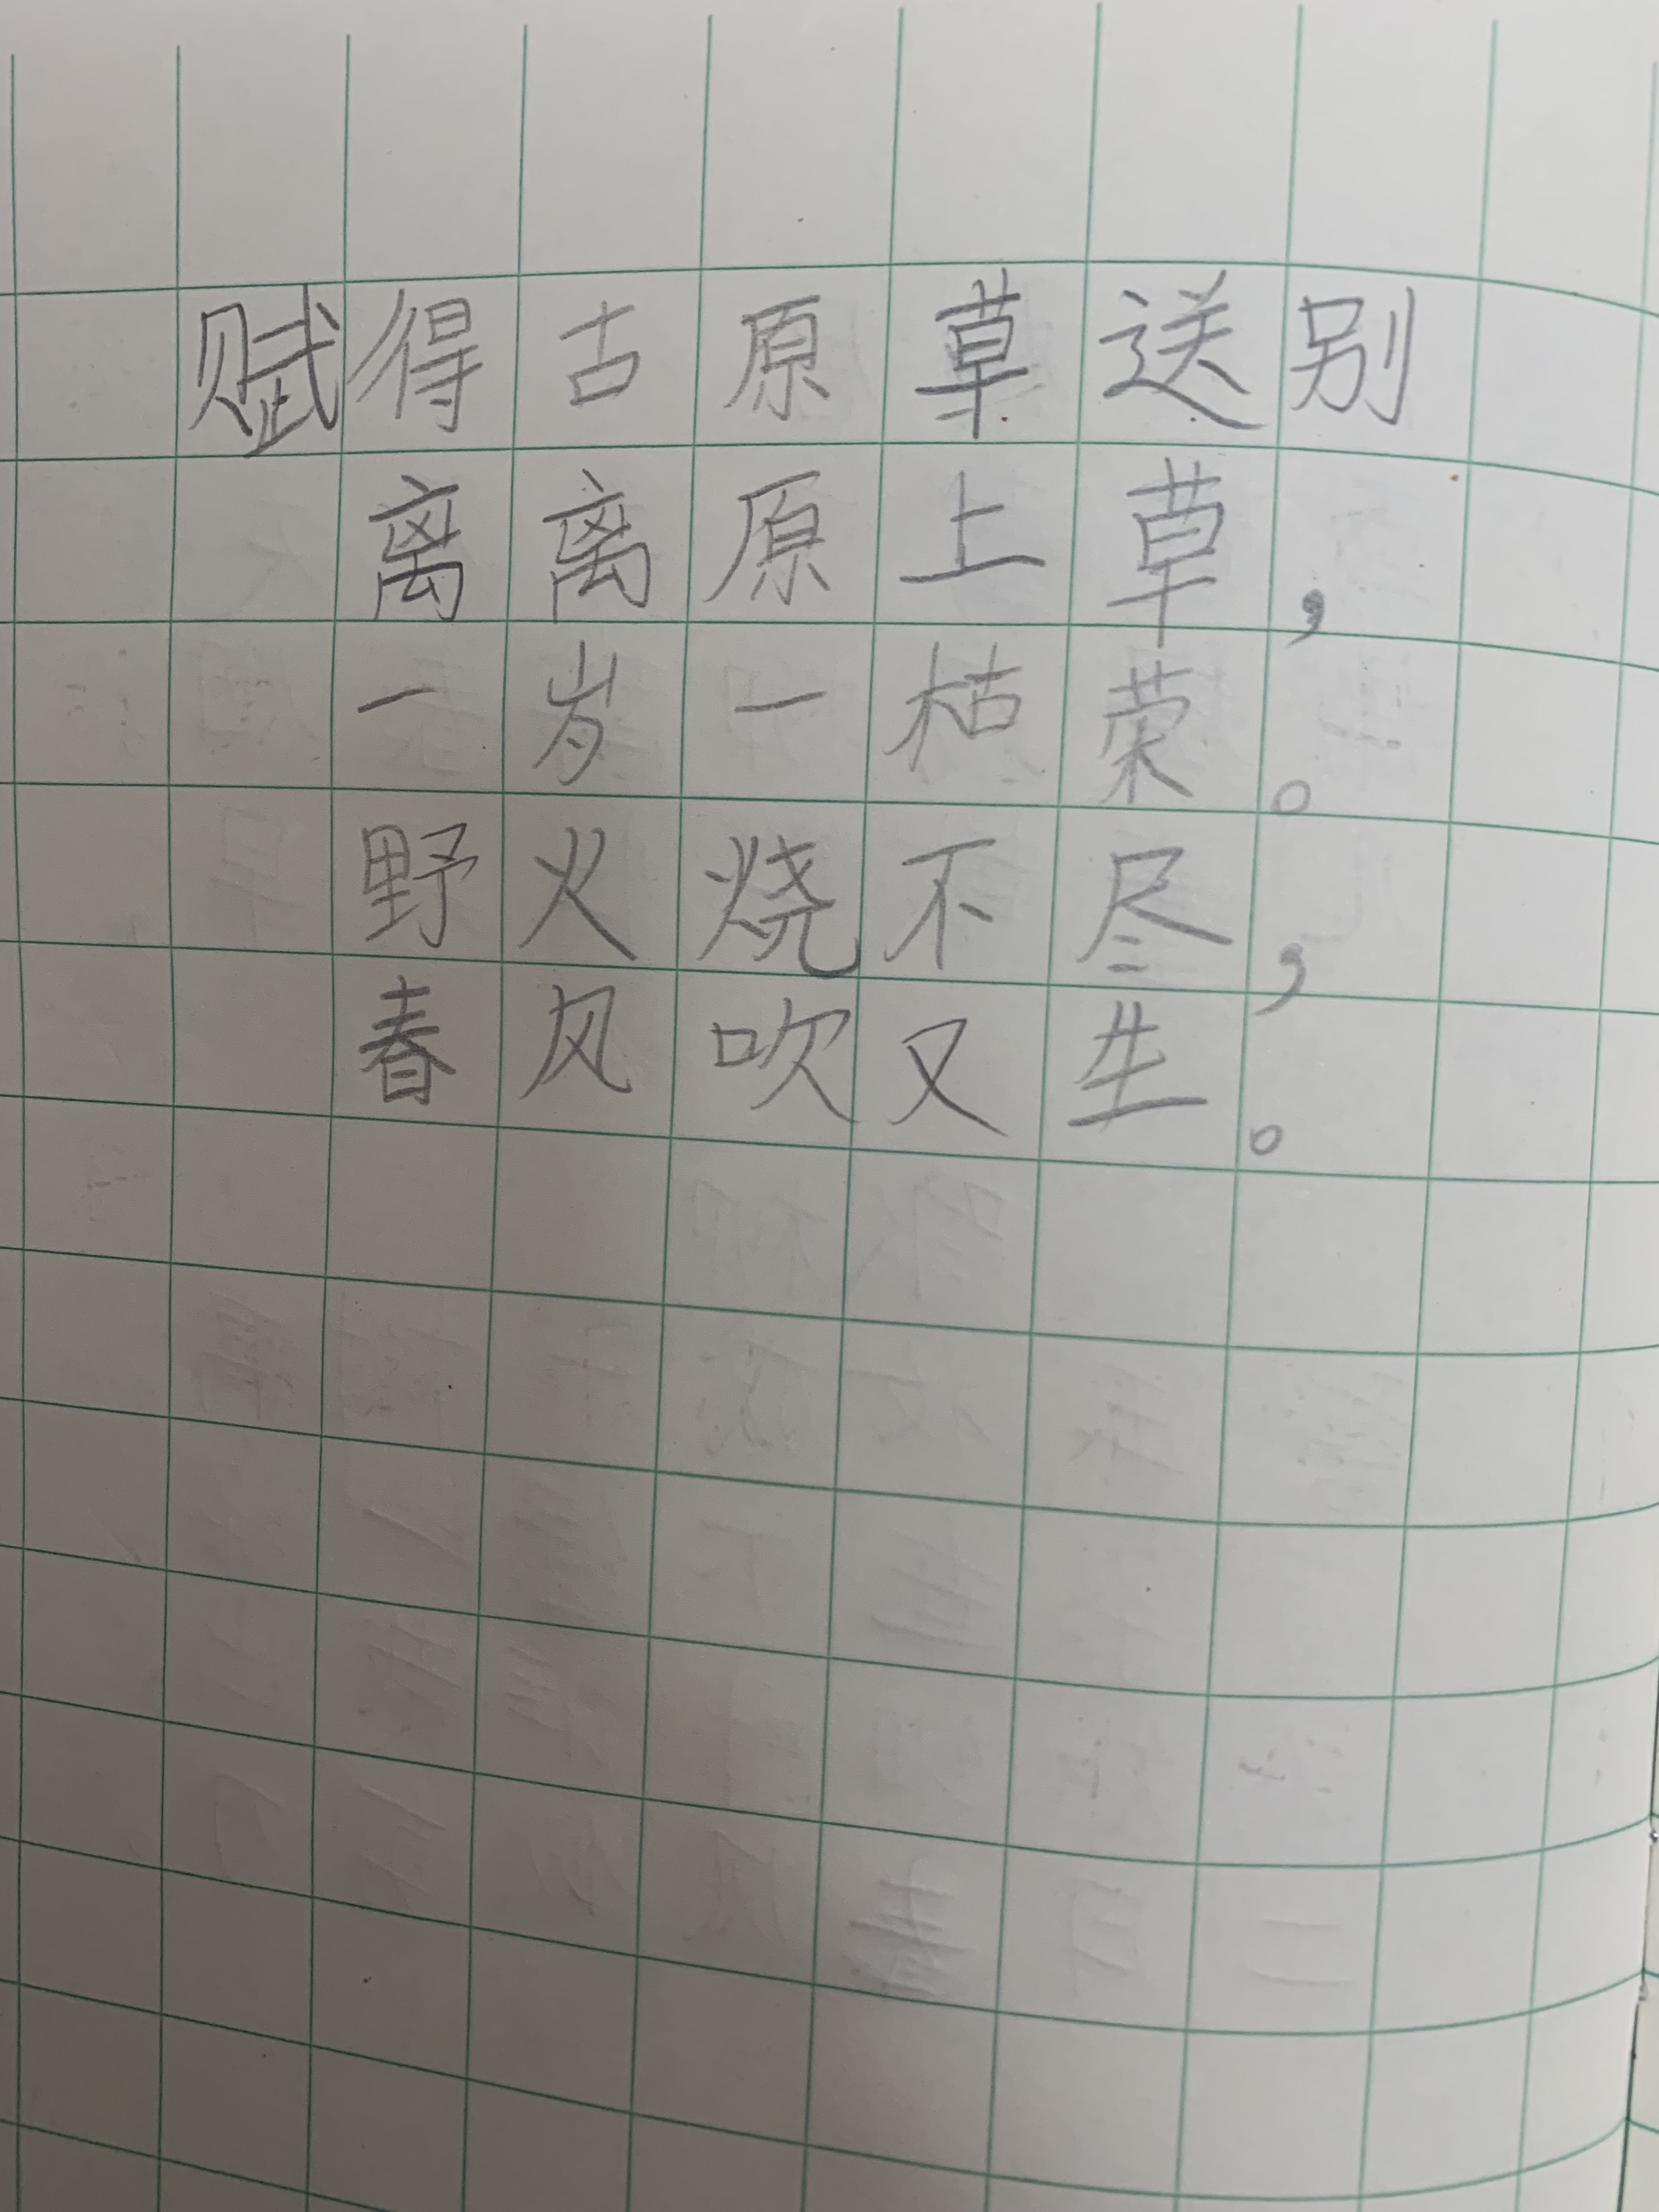 赋得古原草送别
离离原上草，
一岁一枯荣。
野火烧不尽，
春风吹又生。